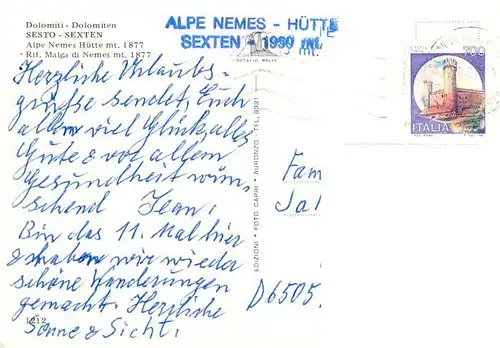 Dolomiti - Dolomiten
SESTO - SEXTEN
Alpe Nemes Hütte mt. 1877
Rif. Malga di Nemes mt. 1877
ALPE NEMES - HÜTTE
SEXTEN - 1950 mt.
700
ITALIA
Herzliche Urlaubs-
grüße sendet Euch
allem viel Glück, alles
Gute & vor allem
Gesundheit wün-
schend Jean!
Bin das 11. Mal hier
& haben wir wieder
schöne Wanderungen
gemacht. Herzliche
Sonne & Sicht!
1212
EDIZIONI - FOTO CAPRI - AURONZO - TEL. 9321
Fam
D6505